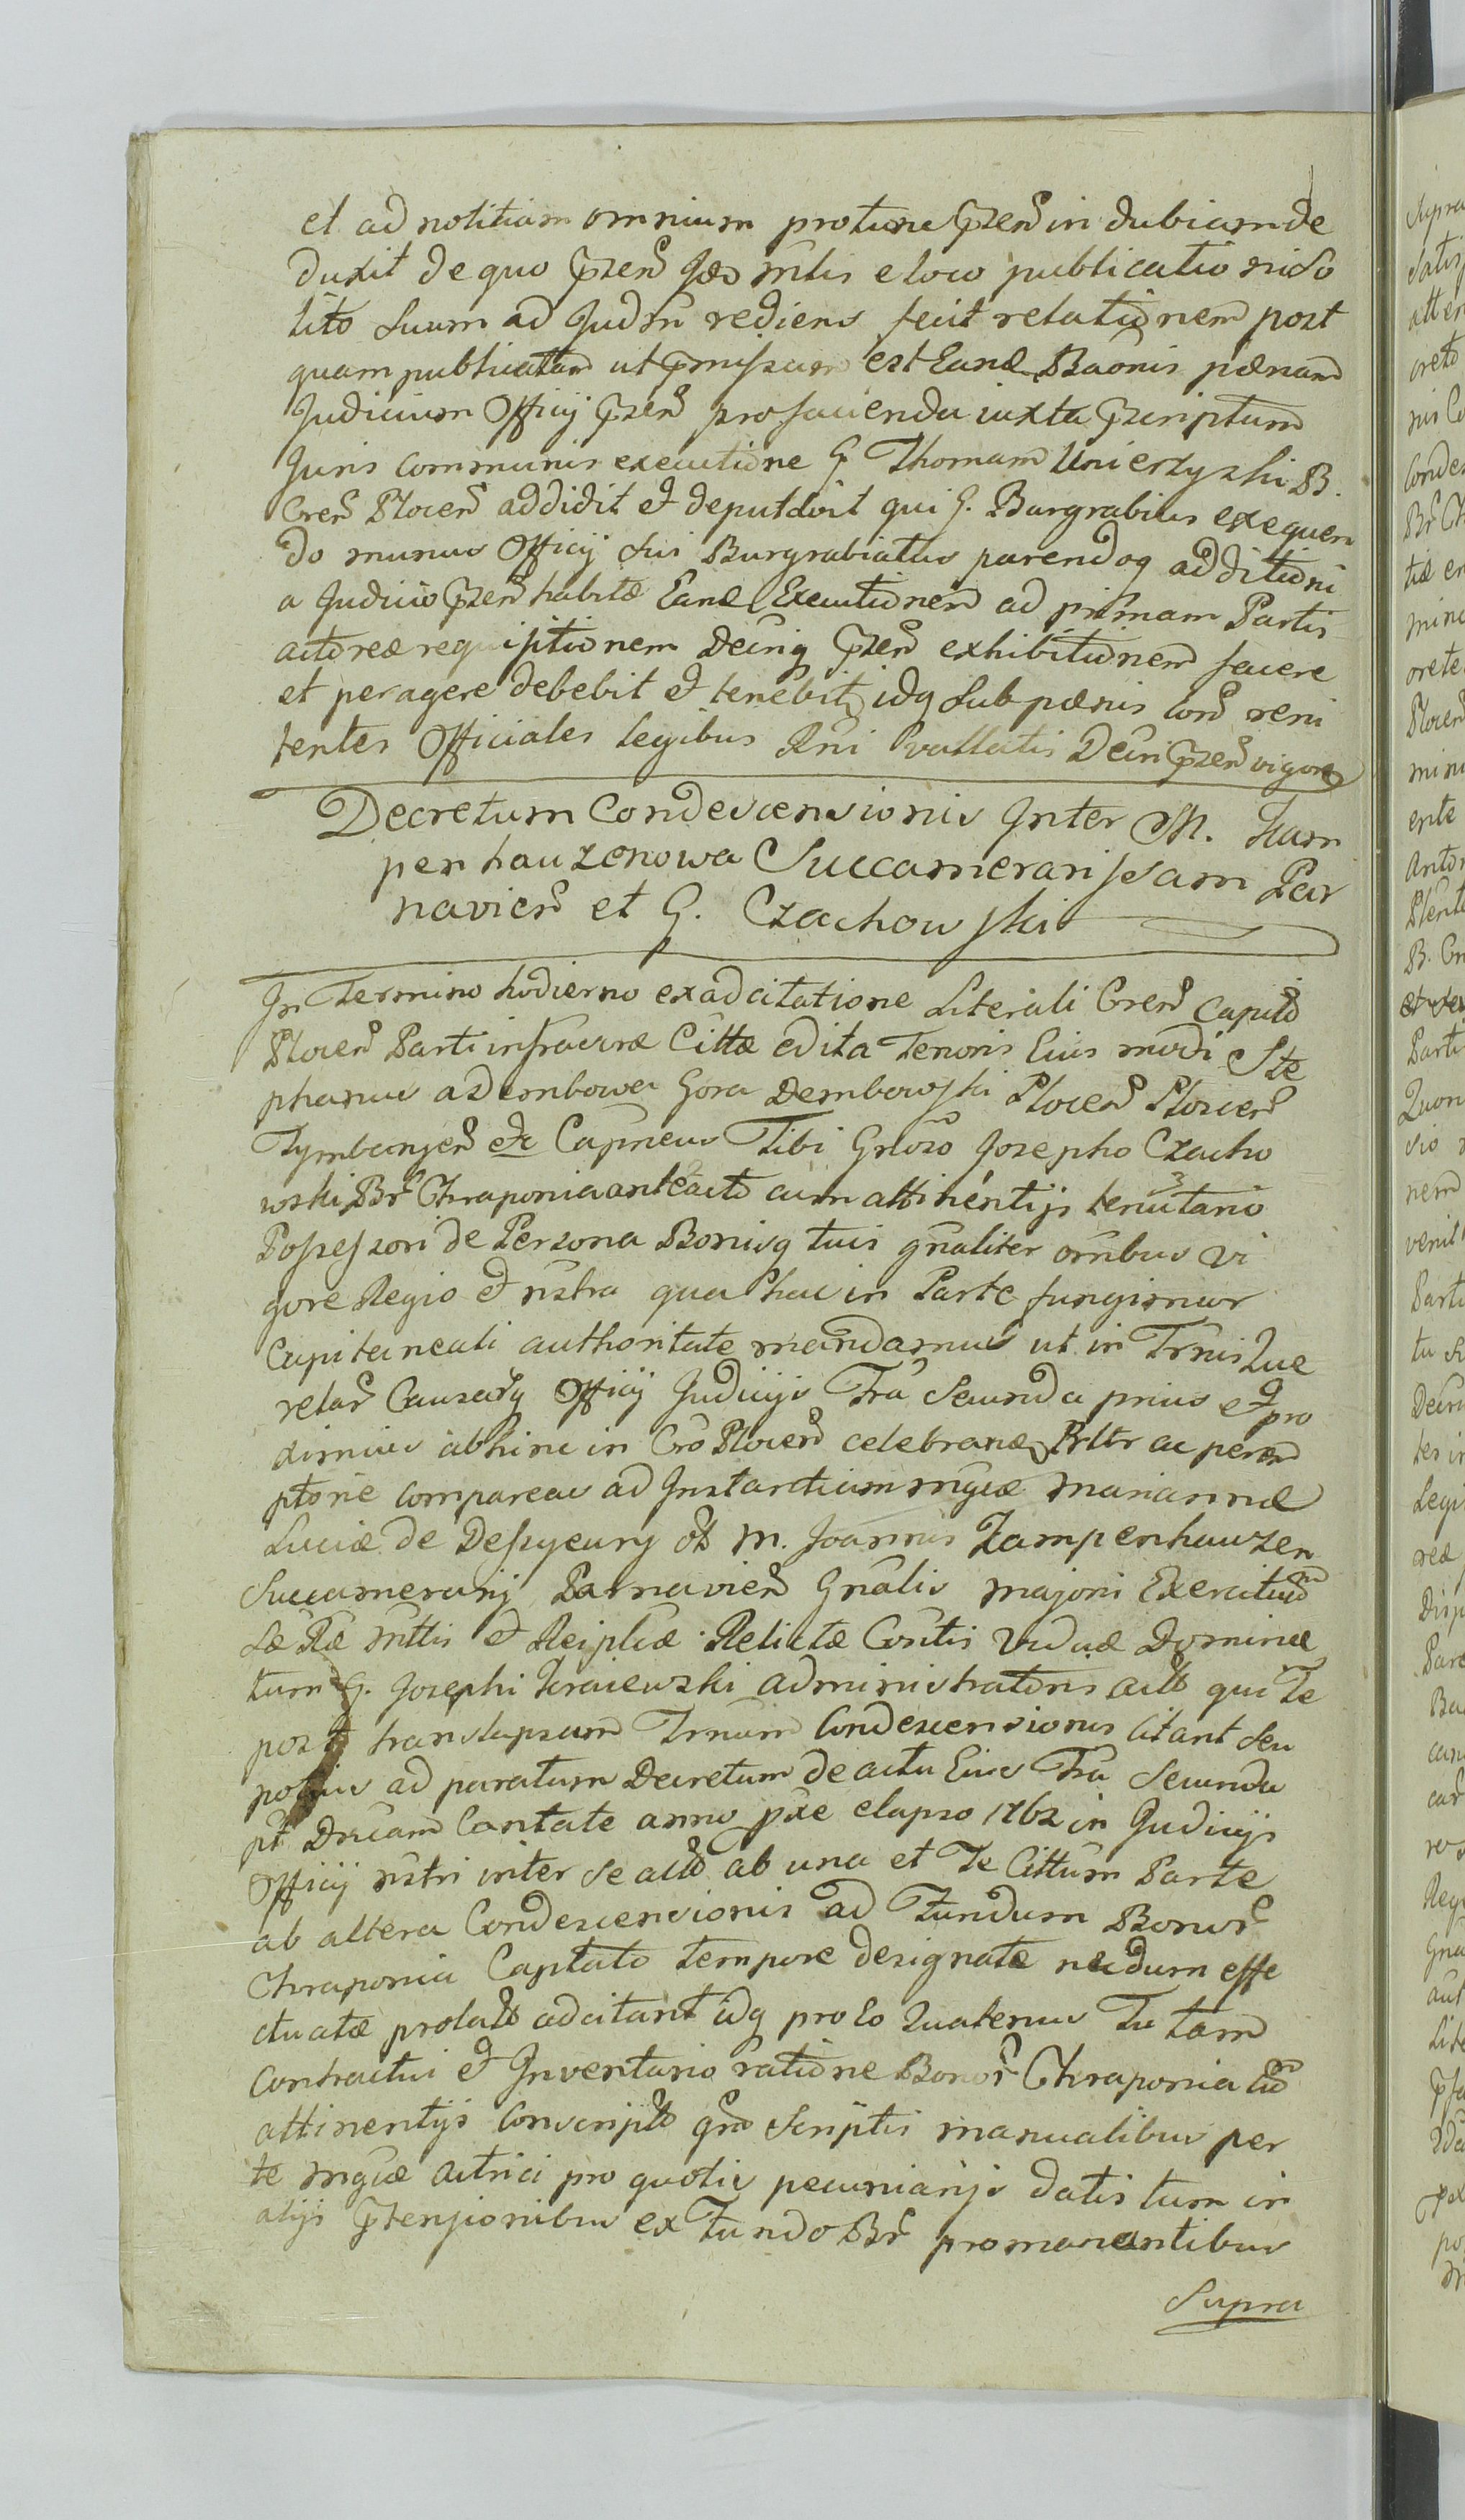 et ad notitiam omnium protunc pzen in dubiam de
duxit de quo pzen Jdo mlis e loco publicatio ni so
lito suum ad Judm rediens fecit relationem post
quam publicatam ut pmissum est Eand Baonis pænam
Judicium Officij pzen pro facienda iuxta pzcriptum
Juris communis executione G Thomam Unierzyski B.
Cren Plocen addidit et deputavit qui G. Burgrabius exequen
do munus Officij sui Burgrabiatus parendoq additioni
a Judicio pzen habitæ Eand Executionem ad primam Partis
actoreæ requisitionem Decriq pzen exhibitionem facere
et peragere debebit et tenebit, idq sub pænis con reni
tentes Officiales legibus Rni vallatis Decri pzen vigore
Decretum Condescensionis Inter M. Kam
penhauzenowa Succamerarissam Par
navien et G. Czachowski
In Termino hodierno ex adcitatione Literali Cren Capitli
Plocen Parti infrascræ Cittæ edita Tenoris Eius modi Ste
phanus a Dembowa Gora Dembowski Plocen Plocen
Tymbargen etc Capneus Tibi Gnoso Josepho Czacho
wski Br Chraponia anteacto cum attinentijs tenutario
Possessori de Persona Bonisq tuis gnaliter omnibus vi
gore Regio et nstra qua hac in Parte fungimur
Capitaneali authoritate mandamus ut in Trnis Que
relar Causarq Officij Judicijs Fra Secunda prius et pro
ximius abhinc in Cro Plocen celebran Prltr ac perem
ptorie compareas ad Instantiam mgcæ Mariannæ
Luciæ de M. Joannis Kampenhauzen
Succamerarij Parnavien Gnalis majoris Exercituum
Sæ Ræ Mttis et Reiplcæ Relictæ Contis Viduæ Dominæ
tum G. Josephi Kraiewski administratoris act qui Te
post translapsum Trnum Condescensionis citant seu
potius ad paratum Decretum de actu Eius Fra Secunda
pt Dncam Cantate anno pxe elapso 1762 in Judicijs
Officij nstri inter se act ab una et Te Cittum Parte
ab altera Condescensionis ad Fundum Bonor
Chraponia Captato tempore designatæ nedum effe
ctuatæ prolat adcitant idq pro eo Quatenus Tu tam
Contractui et Inventario ratione Bonor Chraponia cum
attinentijs conscript qm scriptis manualibus per
te mgcæ actrici pro quotis pecuniarijs datis tum in
alijs ptensionibus ex Fundo Br promanantibus
Supra